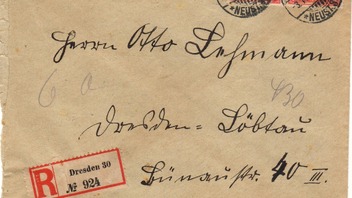 NEUST
NEUST
Herrn Otto Lehmann
60
430
Dresden=Löbtau
R
Dresden 30
№ 924
Bünaustr. 40 III.